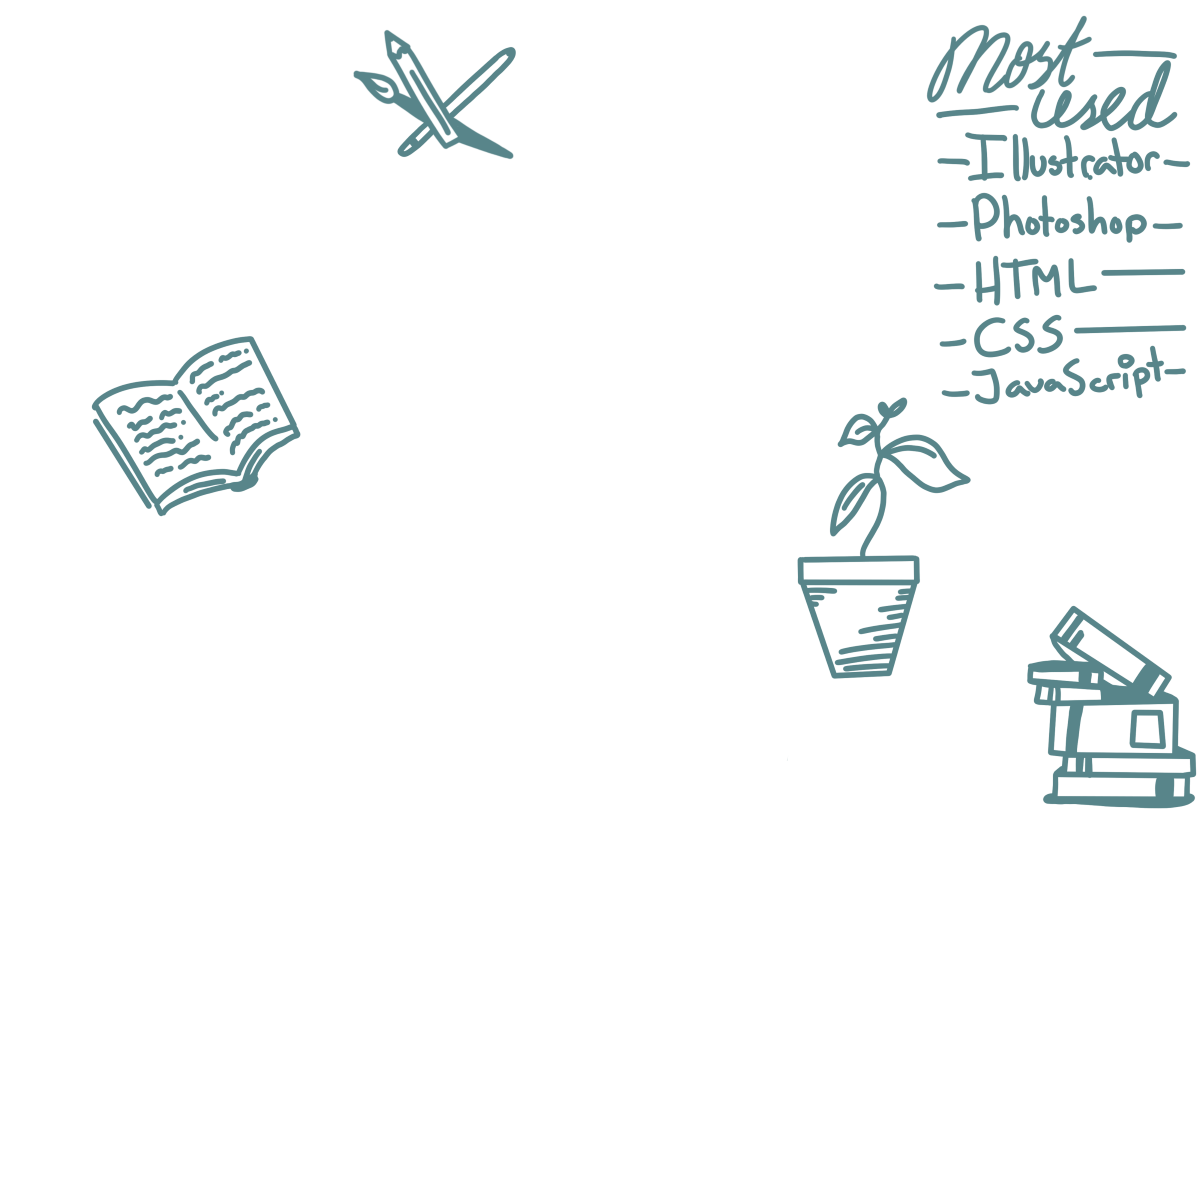 Most
used
Illustrator
Photoshop
HTML
CSS
JavaScript